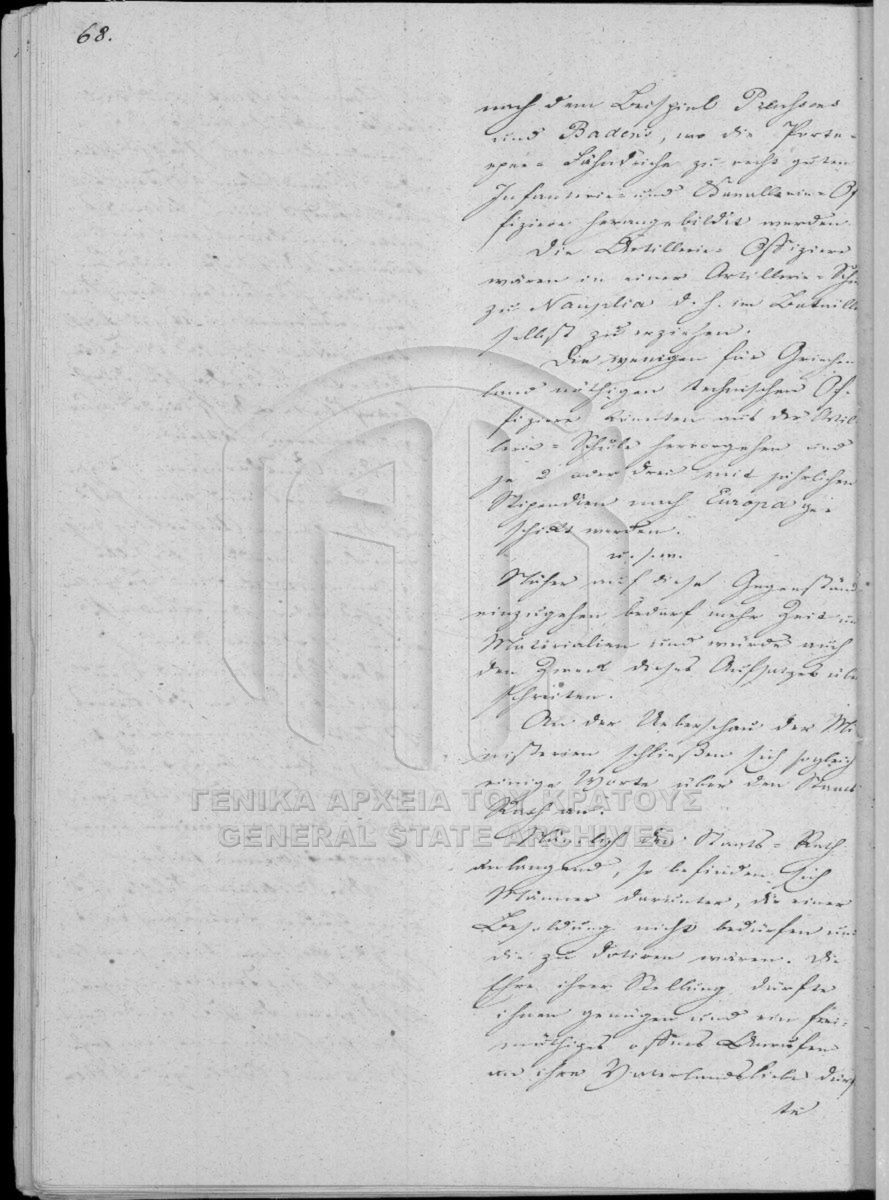 68.
nach dem Beispiel Sachsens
und Badens, wo die Porte-
epee-Fähndriche zu recht guten
Infanterie- und Kavallerie-Of
fizieren herangebildet werden.
Die Artillerie-Offiziere
wären in einer Artillerie-Schu
zu Nauplia d. h. im Bataille
selbst zu erziehen.
Die wenigen für Griechen-
land nöthigen technischen Of-
fiziere könnten aus der Artil
lerie-Schule hervorgehen und
je 2 oder drei mit jährlichen
Stipendien nach Europa ge-
schickt werden.
u. s. w.
Näher auf diese Gegenständ
einzugehen, bedarf mehr Zeit u
Materialien und würde auch
den Zweck dieses Aufsatzes übe
schreiten.
An der Ueberschau der Mi
nisterien schließen sich sogleich
einige Worte über den Staats
Rath an.
den Staats-Rath
anlangend, so befinden sich
Männer darunter, die einer
Besoldung nicht bedürfen un
die zu dotiren wären. Die
Ehre ihrer Stellung dürfte
ihnen genügen und ein frei-
müthiges offenes Anrufen
an ihre Vaterlandsliebe dürf
te
ΓΕΝΙΚΑ ΑΡΧΕΙΑ ΤΟΥ ΚΡΑΤΟΥΣ
GENERAL STATE ARCHIVES